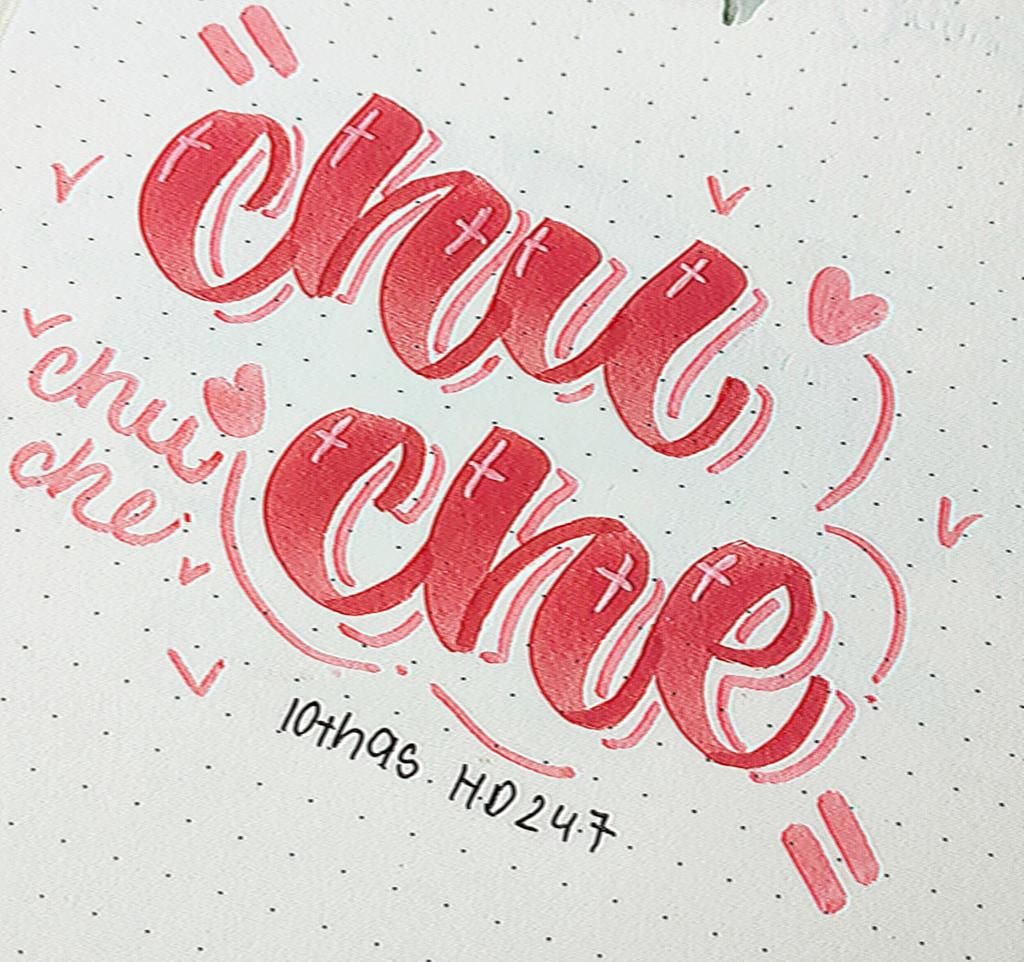 "chu
che"
chu
che
10th9s. H.D 24.7